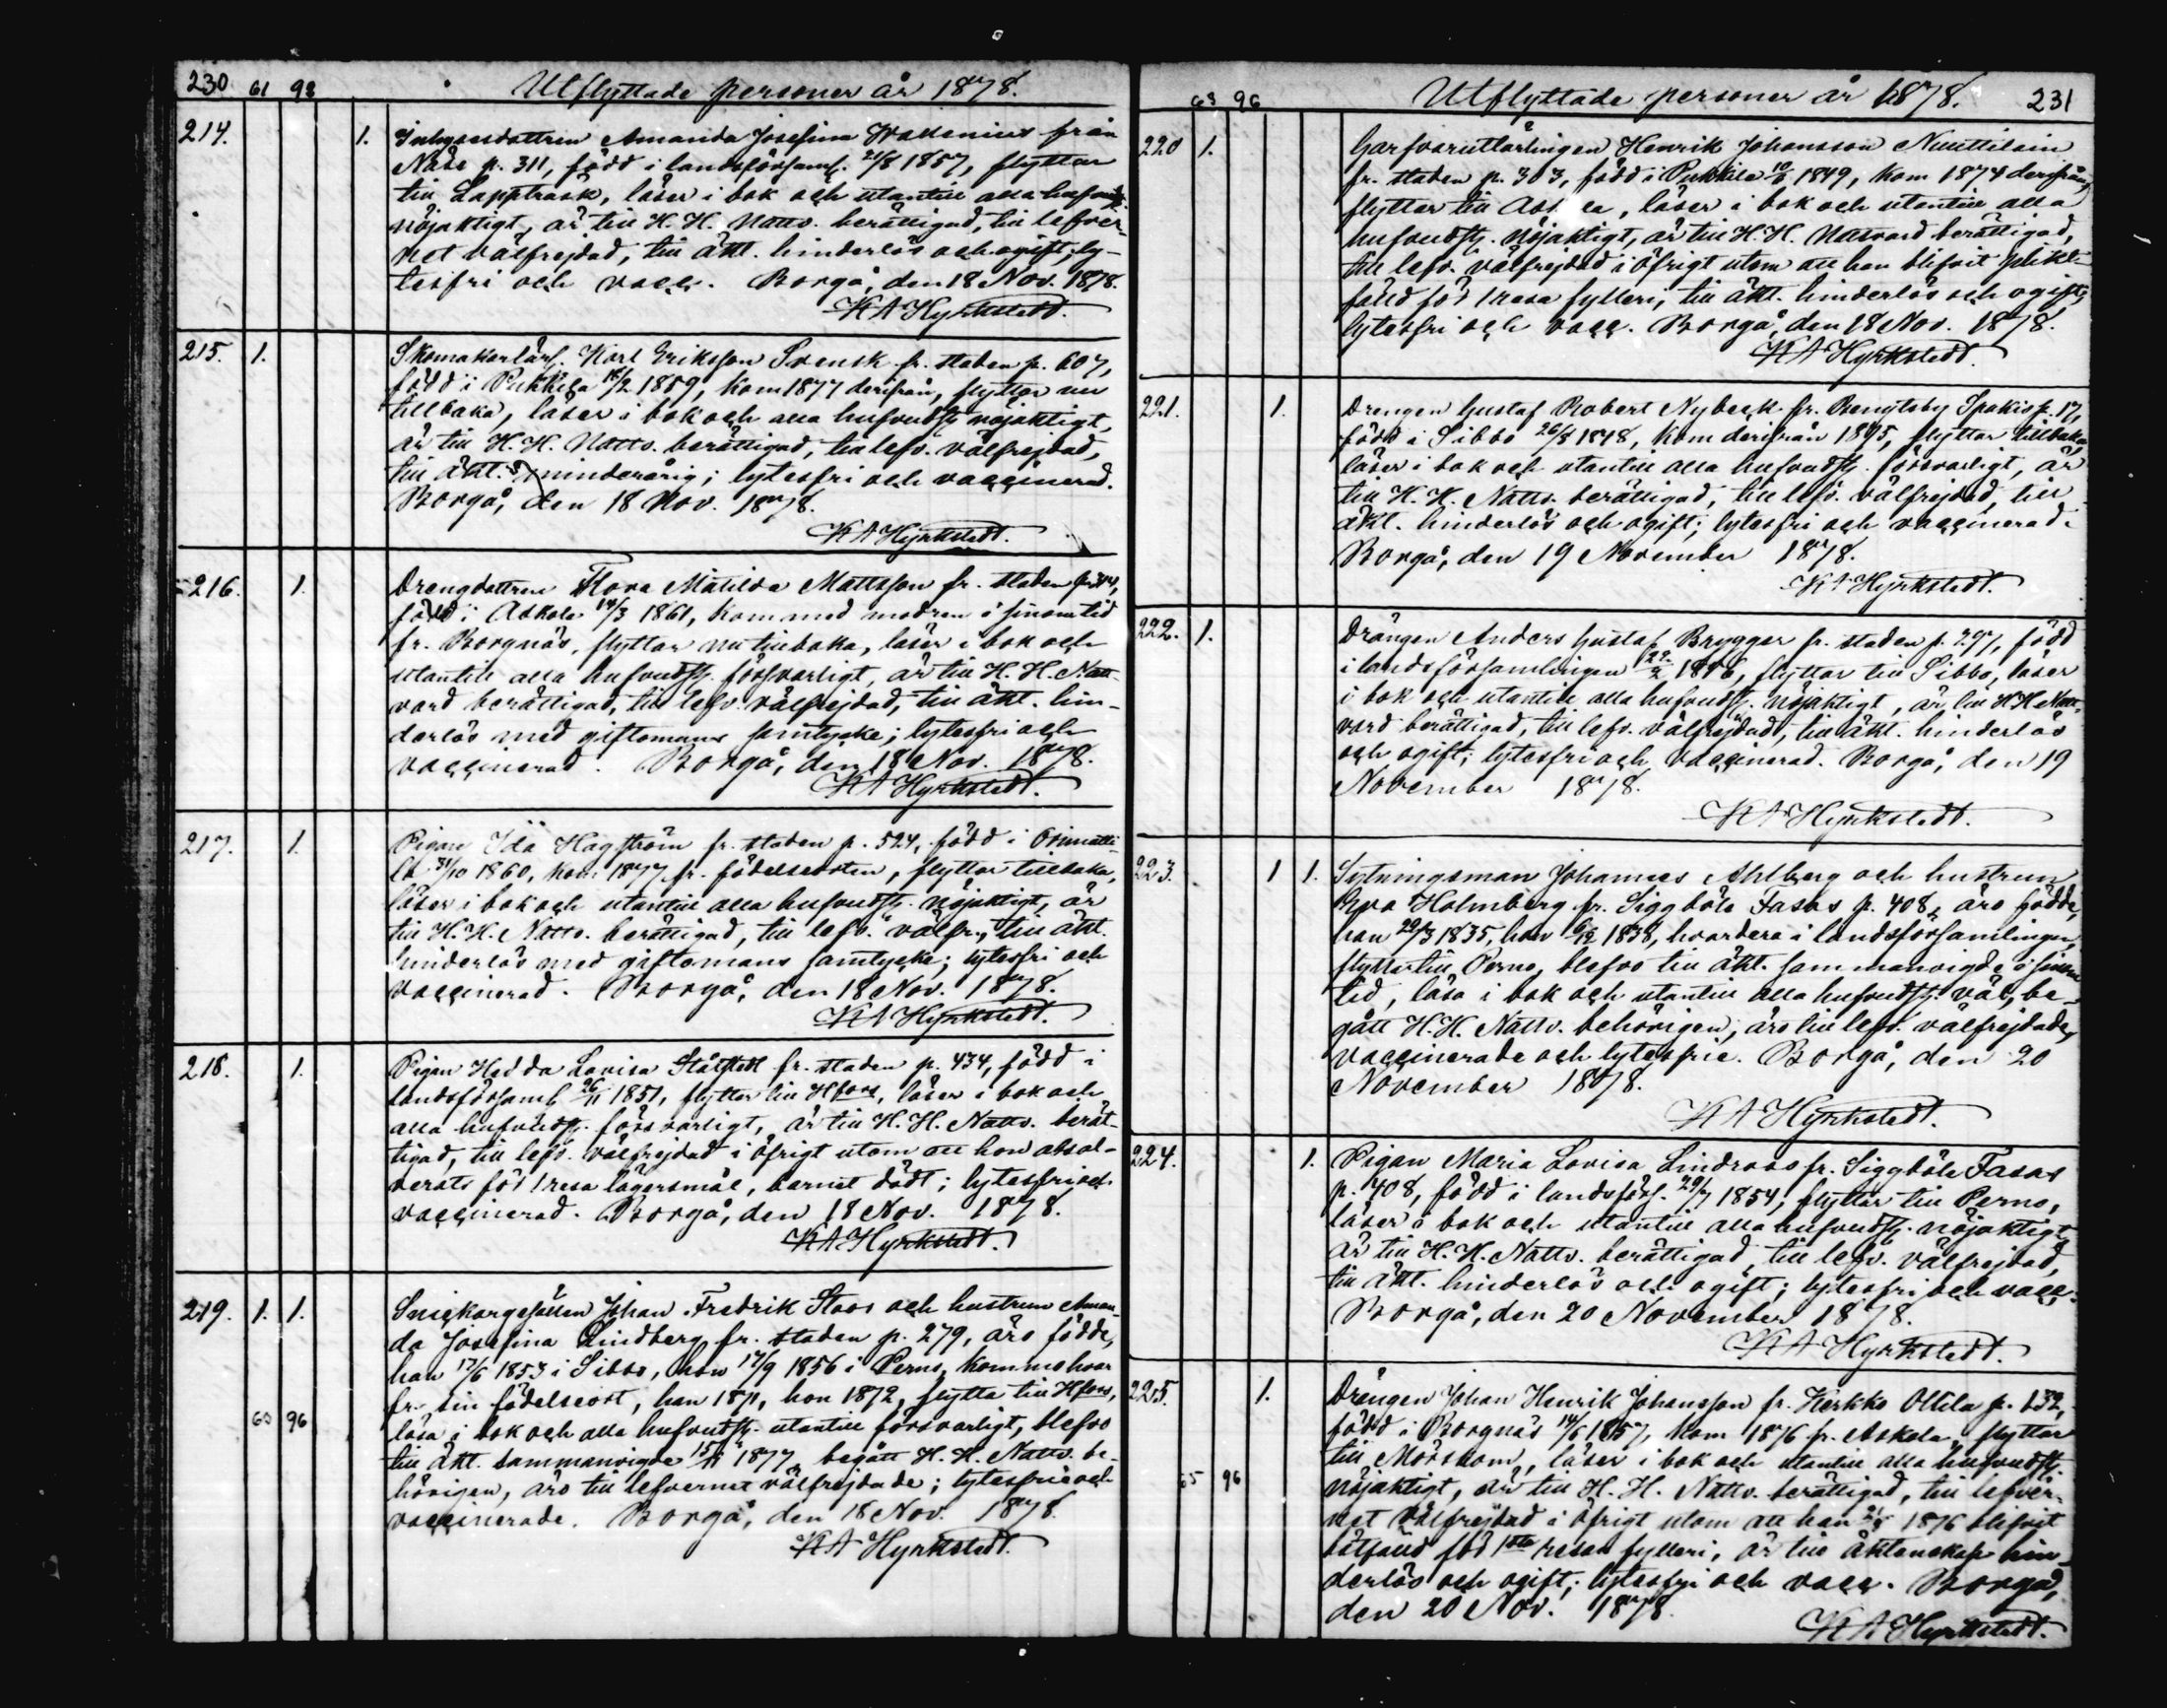 230 61 93 Utflyttade personer år 1878.
214. 1. Inhysesdottren Amanda Josefina Wallenius från
Näse p. 311, född i landsförsaml. 21/8 1857, flyttar
till Lappträsk, läser i bok och utantill alla hufvudst.
nöjaktigt, är till H. H. Nattv. berättigad, till lefver-
net välfrejdad, till äkt. hinderlös och ogift; ly-
tesfri och vacc. Borgå, den 18 Nov. 1878.
K A Hyrkstedt.
215. 1. Skomakarlärl. Karl Eriksson Svensk fr. staden p. 607,
född i Pukkila 1859, kom 1877 derifrån, flyttar nu
tillbaka, läser i bok och alla hufvudst. nöjaktigt,
är till H. H. Nattv. berättigad, till lefv. välfrejdad,
till äkt. minderårig; lytesfri och vaccinerad.
Borgå, den 18 Nov. 1878.
K A Hyrkstedt.
216. 1. Drengdottren Flora Matilda Mattsson fr. staden
född i Askola 14/3 1861, kom med modren i sinom tid
fr. Borgnäs, flyttar nu tillbaka, läser i bok och
utantill alla hufvudst. försvarligt, är till H. H. Natt-
vard berättigad, till lefv. välfrejdad, till äkt. hin-
derlös med giftomans samtycke; lytesfri och
vaccinerad. Borgå, den 18 Nov. 1878.
K A Hyrkstedt.
217. 1. Pigan Ida Hagström fr. staden p. 524, född i Orimatti-
la 31/10 1860, kom 1877 fr. födelseorten, flyttar tillbaka,
läser i bok och utantill alla hufvudst. nöjaktigt, är
till H. H. Nattv. berättigad, till lefv. välfr., till äkt.
hinderlös med giftomans samtycke; lytesfri och
vaccinerad. Borgå, den 18 Nov. 1878.
K A Hyrkstedt.
218. 1. Pigan Hedda Lovisa fr. staden p. 434, född i
landsförsaml. 26/11 1851, flyttar till Hfors, läser i bok och
alla hufvudst. försvarligt, är till H. H. Nattv. berät-
tigad, till lefv. välfrejdad i öfrigt utom att hon absol-
verats för 1 resa lägersmål, barnet dödt; lytesfri och
vaccinerad. Borgå, den 18 Nov. 1878.
K A Hyrkstedt.
219. 1. 1. Snickargesällen Johan Fredrik Stoor och hustrun Aman-
da Josefina Lindberg fr. staden p. 279, äro födde,
han 17/6 1853 i Sibbo, hon 17/9 1856 i Perno, kommo hvar
fr. sin födelseort, han 1871, hon 1872, flytta till Hfors,
60 96 läsa i bok och alla hufvudst. utantill försvarligt, blefvo
till äkt. sammanvigde 1877, begått H. H. Nattv. be-
hörigen, äro till lefvernet välfrejdade; lytesfrie och
vaccinerade. Borgå, den 18 Nov. 1878.
K A Hyrkstedt.
63 96 Utflyttade personer år 1878. 231
220 1. Garfvareutlärlingen Henrik Johansson Nuuttilain
fr. staden p. 303, född i Pukkila 1849, kom 1874 derifrån,
flyttar till, läser i bok och utantill alla
hufvudst. nöjaktigt, är till H. H. Nattvard berättigad,
till lefv. välfrejdad i öfrigt utom att han blifvit plikt-
fälld för 1 resa fylleri, till äkt. hinderlös och ogift;
lytesfri och vacc. Borgå, den 18 Nov. 1878.
K A Hyrkstedt.
221. 1. Drengen Gustaf Robert Nybeck fr. Bengtsby Spakis p. 17,
född i Sibbo 26/8 1848, kom derifrån 1875, flyttar tillbaka,
läser i bok och utantill alla hufvudst. försvarligt, är
till H. H. Nattv. berättigad, till lefv. välfrejdad, till
äkt. hinderlös och ogift; lytesfri och vaccinerad.
Borgå, den 19 November 1878.
K A Hyrkstedt.
222. 1. Drängen Anders Gustaf Brygger fr. staden p. 297, född
i landsförsamlingen 1846, flyttar till Sibbo, läser
i bok och utantill alla hufvudst. nöjaktigt, är till H H Natt-
vard berättigad, till lefv. välfrejdad, till äkt. hinderlös
och ogift; lytesfri och vaccinerad. Borgå, den 19
November 1878.
K A Hyrkstedt.
223. 1 1. Sytningsman Johannes Ahlberg och hustrun
Eva Holmberg fr. Siggböle Fasas p. 408, äro födde,
han 20/3 1835, hon 1838, hvardera i landsförsamlingen,
flytta till Perno, blefvo till äkt. sammanvigde i sinom
tid, läsa i bok och utantill alla hufvudst. väl, be-
gått H. H. Nattv. behörigen, äro till lefv. välfrejdade,
vaccinerade och lytesfrie. Borgå, den 20
November 1878.
K A Hyrkstedt.
224. 1. Pigan Maria Lovisa Lindroos fr. Siggböle Fasas
p. 408, född i landsförs. 29/7 1854, flyttar till Perno,
läser i bok och utantill alla hufvudst. nöjaktigt,
är till H. H. Nattv. berättigad, till lefv. välfrejdad,
till äkt. hinderlös och ogift; lytesfri och vacc.
Borgå, den 20 November 1878.
K A Hyrkstedt.
225. 1. Drängen Johan Henrik Johansson fr. Kerkko Ollila p. 132,
född i Borgnäs 14/6 1857, kom 1876 fr. Askola, flyttar
65 96 till Mörskom, läser i bok och utantill alla hufvudst.
nöjaktigt, är till H. H. Nattv. berättigad, till lefver-
net välfrejdad i öfrigt utom att han 1876 blifvit
sakfälld för 1sta resan fylleri, är till äktenskap hin-
derlös och ogift; lytesfri och vacc. Borgå,
den 20 Nov. 1878.
K A Hyrkstedt.